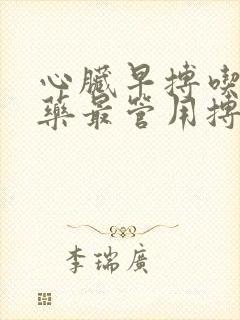 心臟早搏喫
藥最管用搏
李瑞廣